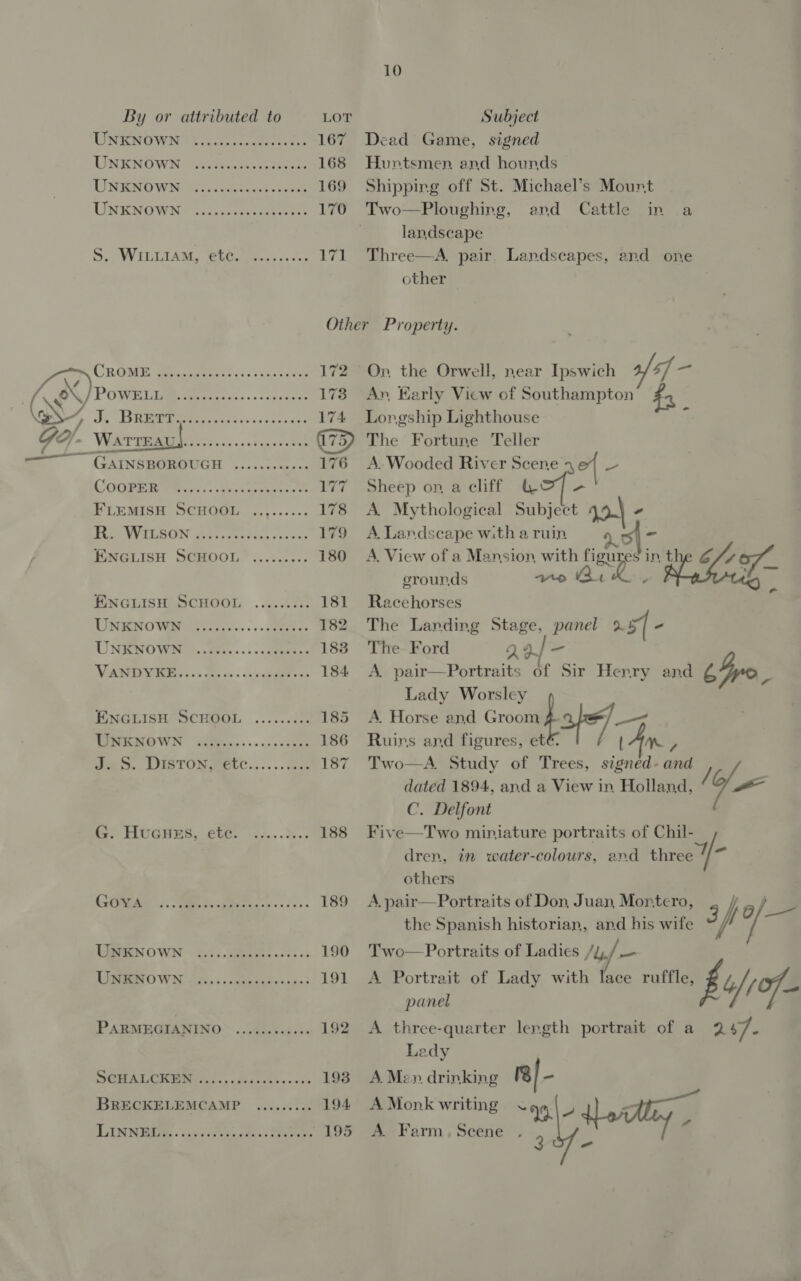 10
By or attributed to LOT Subject
UNKNOWN ..................... 167 Dead Game, signed
UNKNOWN ..................... 168 Huntsmen and hounds
UNKNOWN ..................... 169 Shipping off St. Michael's Mount
UNKNOWN ..................... 170 Two—Ploughing, and Cattle in a
landscape
S. WILLIAM, etc. ......... 171 Three—A pair Landscapes, and one
other
Other Property.
CROME ........................ 172 On the Orwell, near Ipswich
POWELL ..................... 173 An Early View of Southampton
J. BRETT..................... 174 Longship Lighthouse
WATTEAU..................... 175 The Fortune Teller
GAINSBOROUGH ............ 176 A Wooded River Scene
COOPER ..................... 177 Sheep on a cliff
FLEMISH SCHOOL ......... 178 A Mythological Subject
R. WILSON .................. 179 A Landscape with a ruin
ENGLISH SCHOOL ......... 180 A View of a Mansion with figures in the
grounds
ENGLISH SCHOOL ......... 181 Racehorses
UNKNOWN .................. 182 The Landing Stage, panel 25/-
UNKNOWN .................. 183 The Ford 22/-
VANDYKE..................... 184 A pair—Portraits of Sir Henry and
Lady Worsley
ENGLISH SCHOOL ......... 185 A Horse and Groom
UNKNOWN .................. 186 Ruins and figures, etc.
J. S. DISTON, etc............ 187 Two—A Study of Trees, signed and
dated 1894, and a View in Holland,
C. Delfont
G. HUGHES, etc. ......... 188 Five—Two miniature portraits of Chil-
dren, in water-colours, and three
others
GOYA ........................ 189 A pair—Portraits of Don Juan Montero,
the Spanish historian, and his wife
UNKNOWN .................. 190 Two—Portraits of Ladies
UNKNOWN .................. 191 A Portrait of Lady with lace ruffle,
panel
PARMEGIANINO ............ 192 A three-quarter length portrait of a
Lady
SCHALCKEN .................. 193 A Men drinking 18/-
BRECKELEMCAMP ......... 194 A Monk writing
LINNEL........................ 195 A Farm Scene